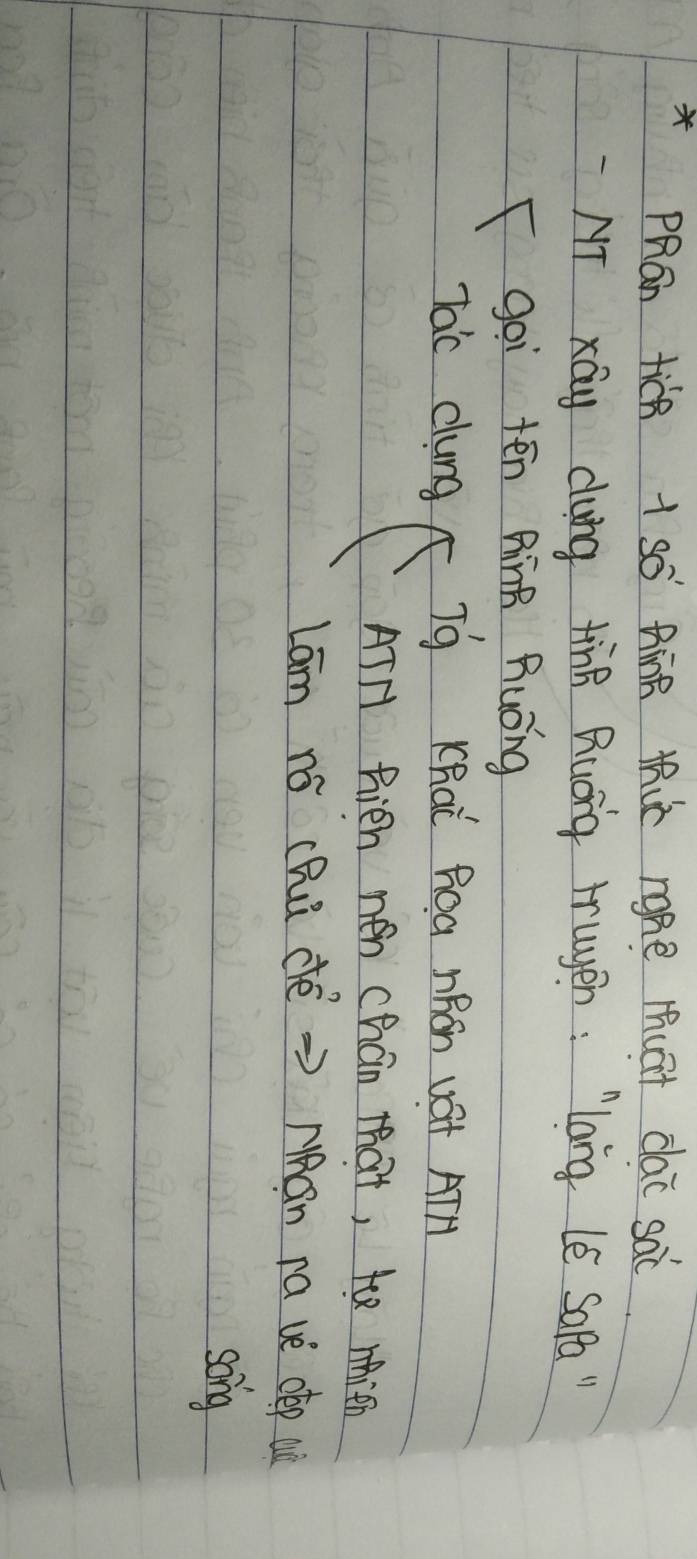 * Phân tích 1 số hình thức nghệ thuật đặc sắc
- NT xây dựng tình huống truyện. "lặng lẽ SaPa"
gọi tên hình huống
Tác dụng Tg khắc họa nhân vật ATN
ATN hiện nên chân thật, tự nhiên
Làm rõ chủ đề => Nhận ra vẻ đẹp cuộc
sống